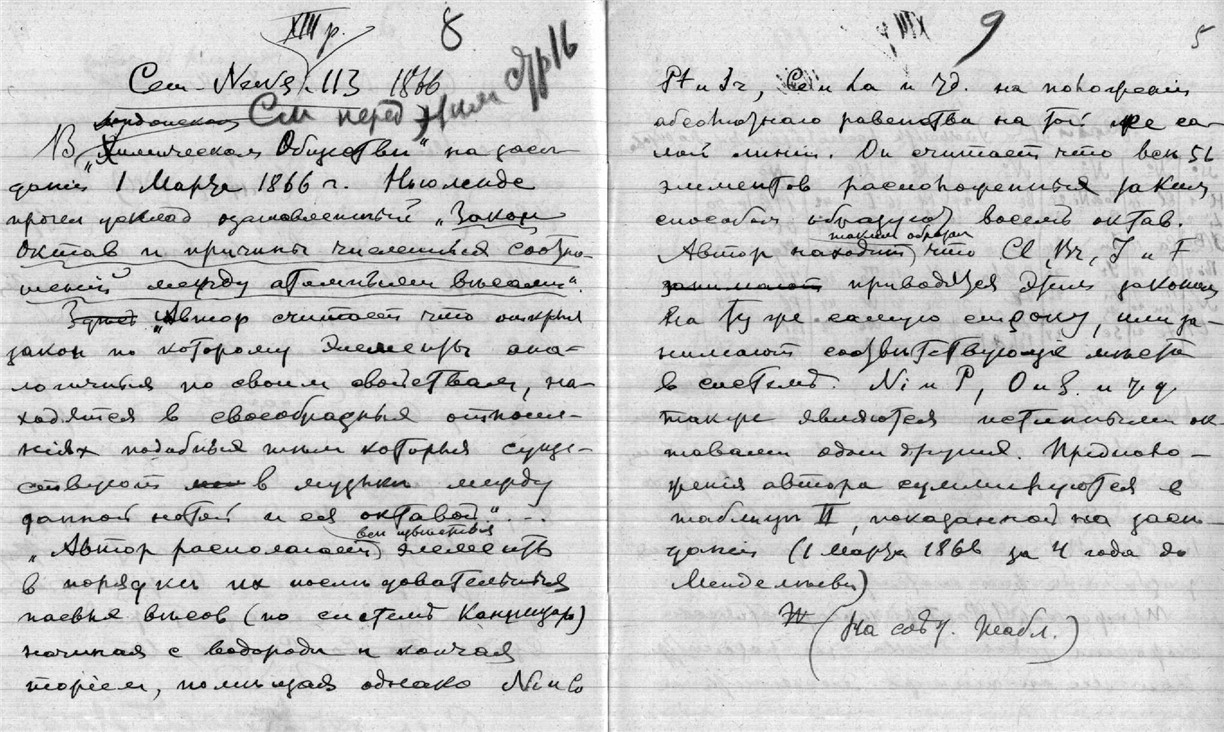 XIII р.
8
Cem-News. 113 1866
См перед этим стр 16
В „Химическом Обществѣ" на засѣ-
данiи 1 Марта 1866 г. Ньюлендс
прочел доклад озаглавленный „Закон
октав и причины численных соотно-
шенiй между атомными вѣсами".
„Автор считает что открыл
закон по которому элементы ана-
логичные по своим свойствам, на-
ходятся в своеобразных отноше-
нiях подобных тѣм которыя суще-
ствуют в музыкѣ между
данной нотой и ея октавой"...
всѣ извѣстные
„Автор располагает элементы
в порядкѣ их послѣдовательных
паевых вѣсов (по системѣ Канницаро)
начиная с водорода и кончая
торiем, помѣщая однако Ni и Co
XIII
9
5
Pt и Ir, Ce и La и т.д. на положенiи
абсолютнаго равенства на той же са-
мой линiи. Он считает что всѣ 56
элементов расположенные таким
способом образуют восемь октав.
таким образом
Автор находит что Cl, Br, J и F
занимают приводятся этим законом
на ту же самую сторону, или за-
нимают соотвѣтствующiе мѣста
в системѣ. Ni и P, O и S. и т.д.
также являются истинными ок-
тавами одни других. Предполо-
женiя автора суммируются в
таблицѣ II, показанной на засѣ-
данiи (1 марта 1866 за 4 года до
Менделѣева)
(На соотв. табл.)